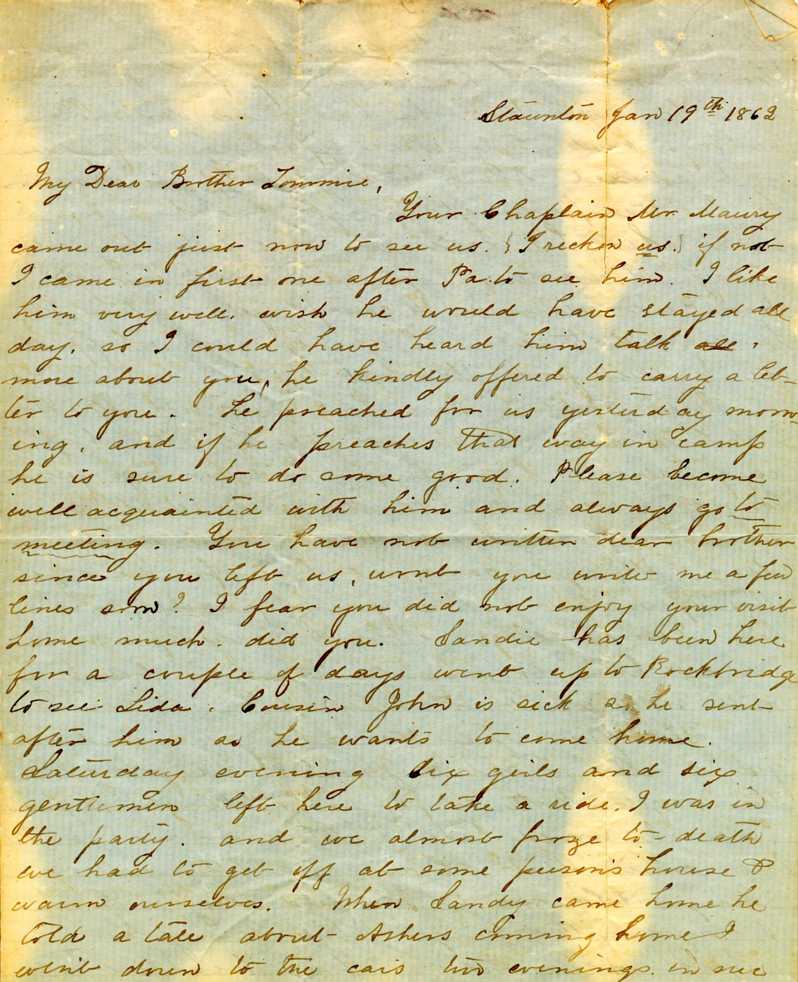 Staunton Jan 19th 1862
My Dear Brother Tommie,
Your Chaplain Mr. Maury
came out just now to see us. (I reckon us.) if not
I came in first one after Pa. to see him. I like
him very well. wish he would have stayed all
day. so I could have heard him talk all.
more about you, he kindly offered to carry a let-
ter to you. he preached for us yesterday morn-
ing, and if he preaches that way in camp
he is sure to do some good. Please become
well acquainted with him and always go to
meeting. You have not written dear brother
since you left us, wont you write me a few
lines soon? I fear you did not enjoy your visit
home much. did you. Sandie has been here
for a couple of days went up to Rockbridge
to see Lida. Cousin John is sick so he sent
after him as he wants to come home.
Saturday evening six girls and six
gentlemen left here to take a ride. I was in
the party. and we almost froze to-death
we had to get off at some person's house &
warm ourselves. When Sandy came home he
told a tale about Ashers coming home I
went down to the cars two evenings in suc